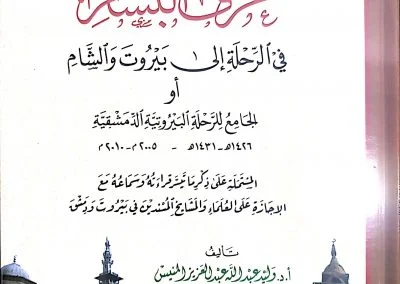 في الرِّحْلَةِ إِلى بَيْرُوتَ وَالشَّامِ
أو
الجَامِعُ لِلرِّحْلَةِ البَيْرُوتِيَّةِ الدِّمَشْقِيَّةِ
١٤٢٦هـ - ١٤٣١هـ - ٢٠٠٥م - ٢٠١٠م
المُشْتَمِلَةِ عَلَى ذِكْرِ مَا تَيَسَّرَ قِرَاءَتُهُ وَسَمَاعُهُ مَعَ
الإِجَازَةِ عَلَى العُلَمَاءِ وَالمَشَايِخِ المُسْنِدِينَ فِي بَيْرُوتَ وَدِمَشْقَ
تأليف
أ.د. وليد عبد الله عبد العزيز المنيس